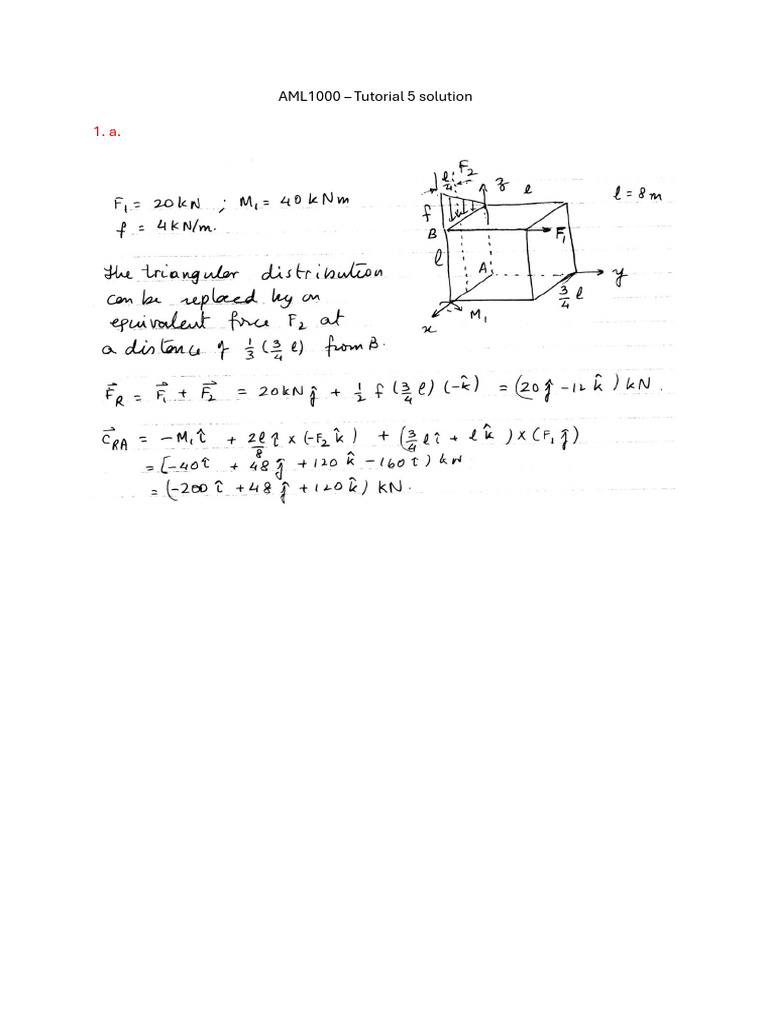 AML1000 – Tutorial 5 solution
1. a.
F₁ = 20 kN ; M₁ = 40 kNm
f = 4 kN/m.
l/4 F₂ z l l = 8 m
f
B F₁
l A y
3/4 l
x M₁
The triangular distribution
can be replaced by an
equivalent force F₂ at
a distance of 1/3 (3/4 l) from B.
F⃗_R = F⃗₁ + F⃗₂ = 20kN ĵ + 1/2 f (3/4 l) (-k̂) = (20 ĵ - 12 k̂) kN.
C⃗_RA = -M₁ î + 2l/8 î × (-F₂ k̂) + (3/4 l î + l k̂) × (F₁ ĵ)
= [-40 î + 48 ĵ + 120 k̂ - 160 î) kN
= (-200 î + 48 ĵ + 120 k̂) KN.